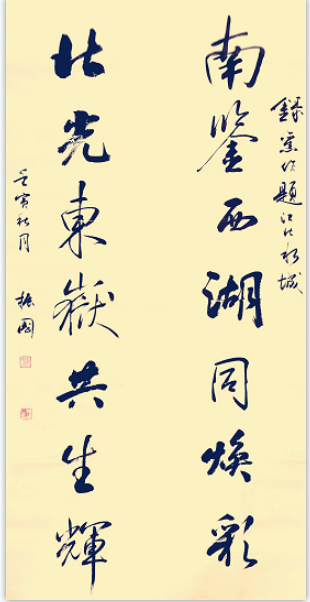 錄 作題江北水城
南鑒西湖同煥彩
北光東嶽共生輝
壬寅秋月 振國